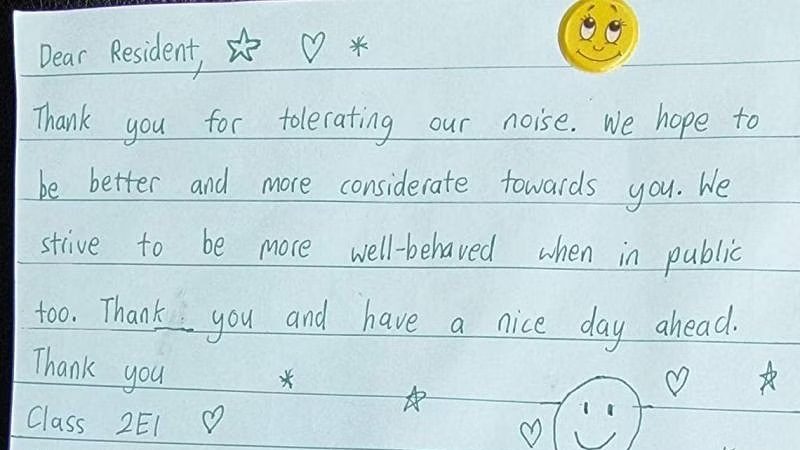 Dear Resident,
Thank you for tolerating our noise. We hope to
be better and more considerate towards you. We
strive to be more well-behaved when in public
too. Thank you and have a nice day ahead.
Thank you
Class 2E1